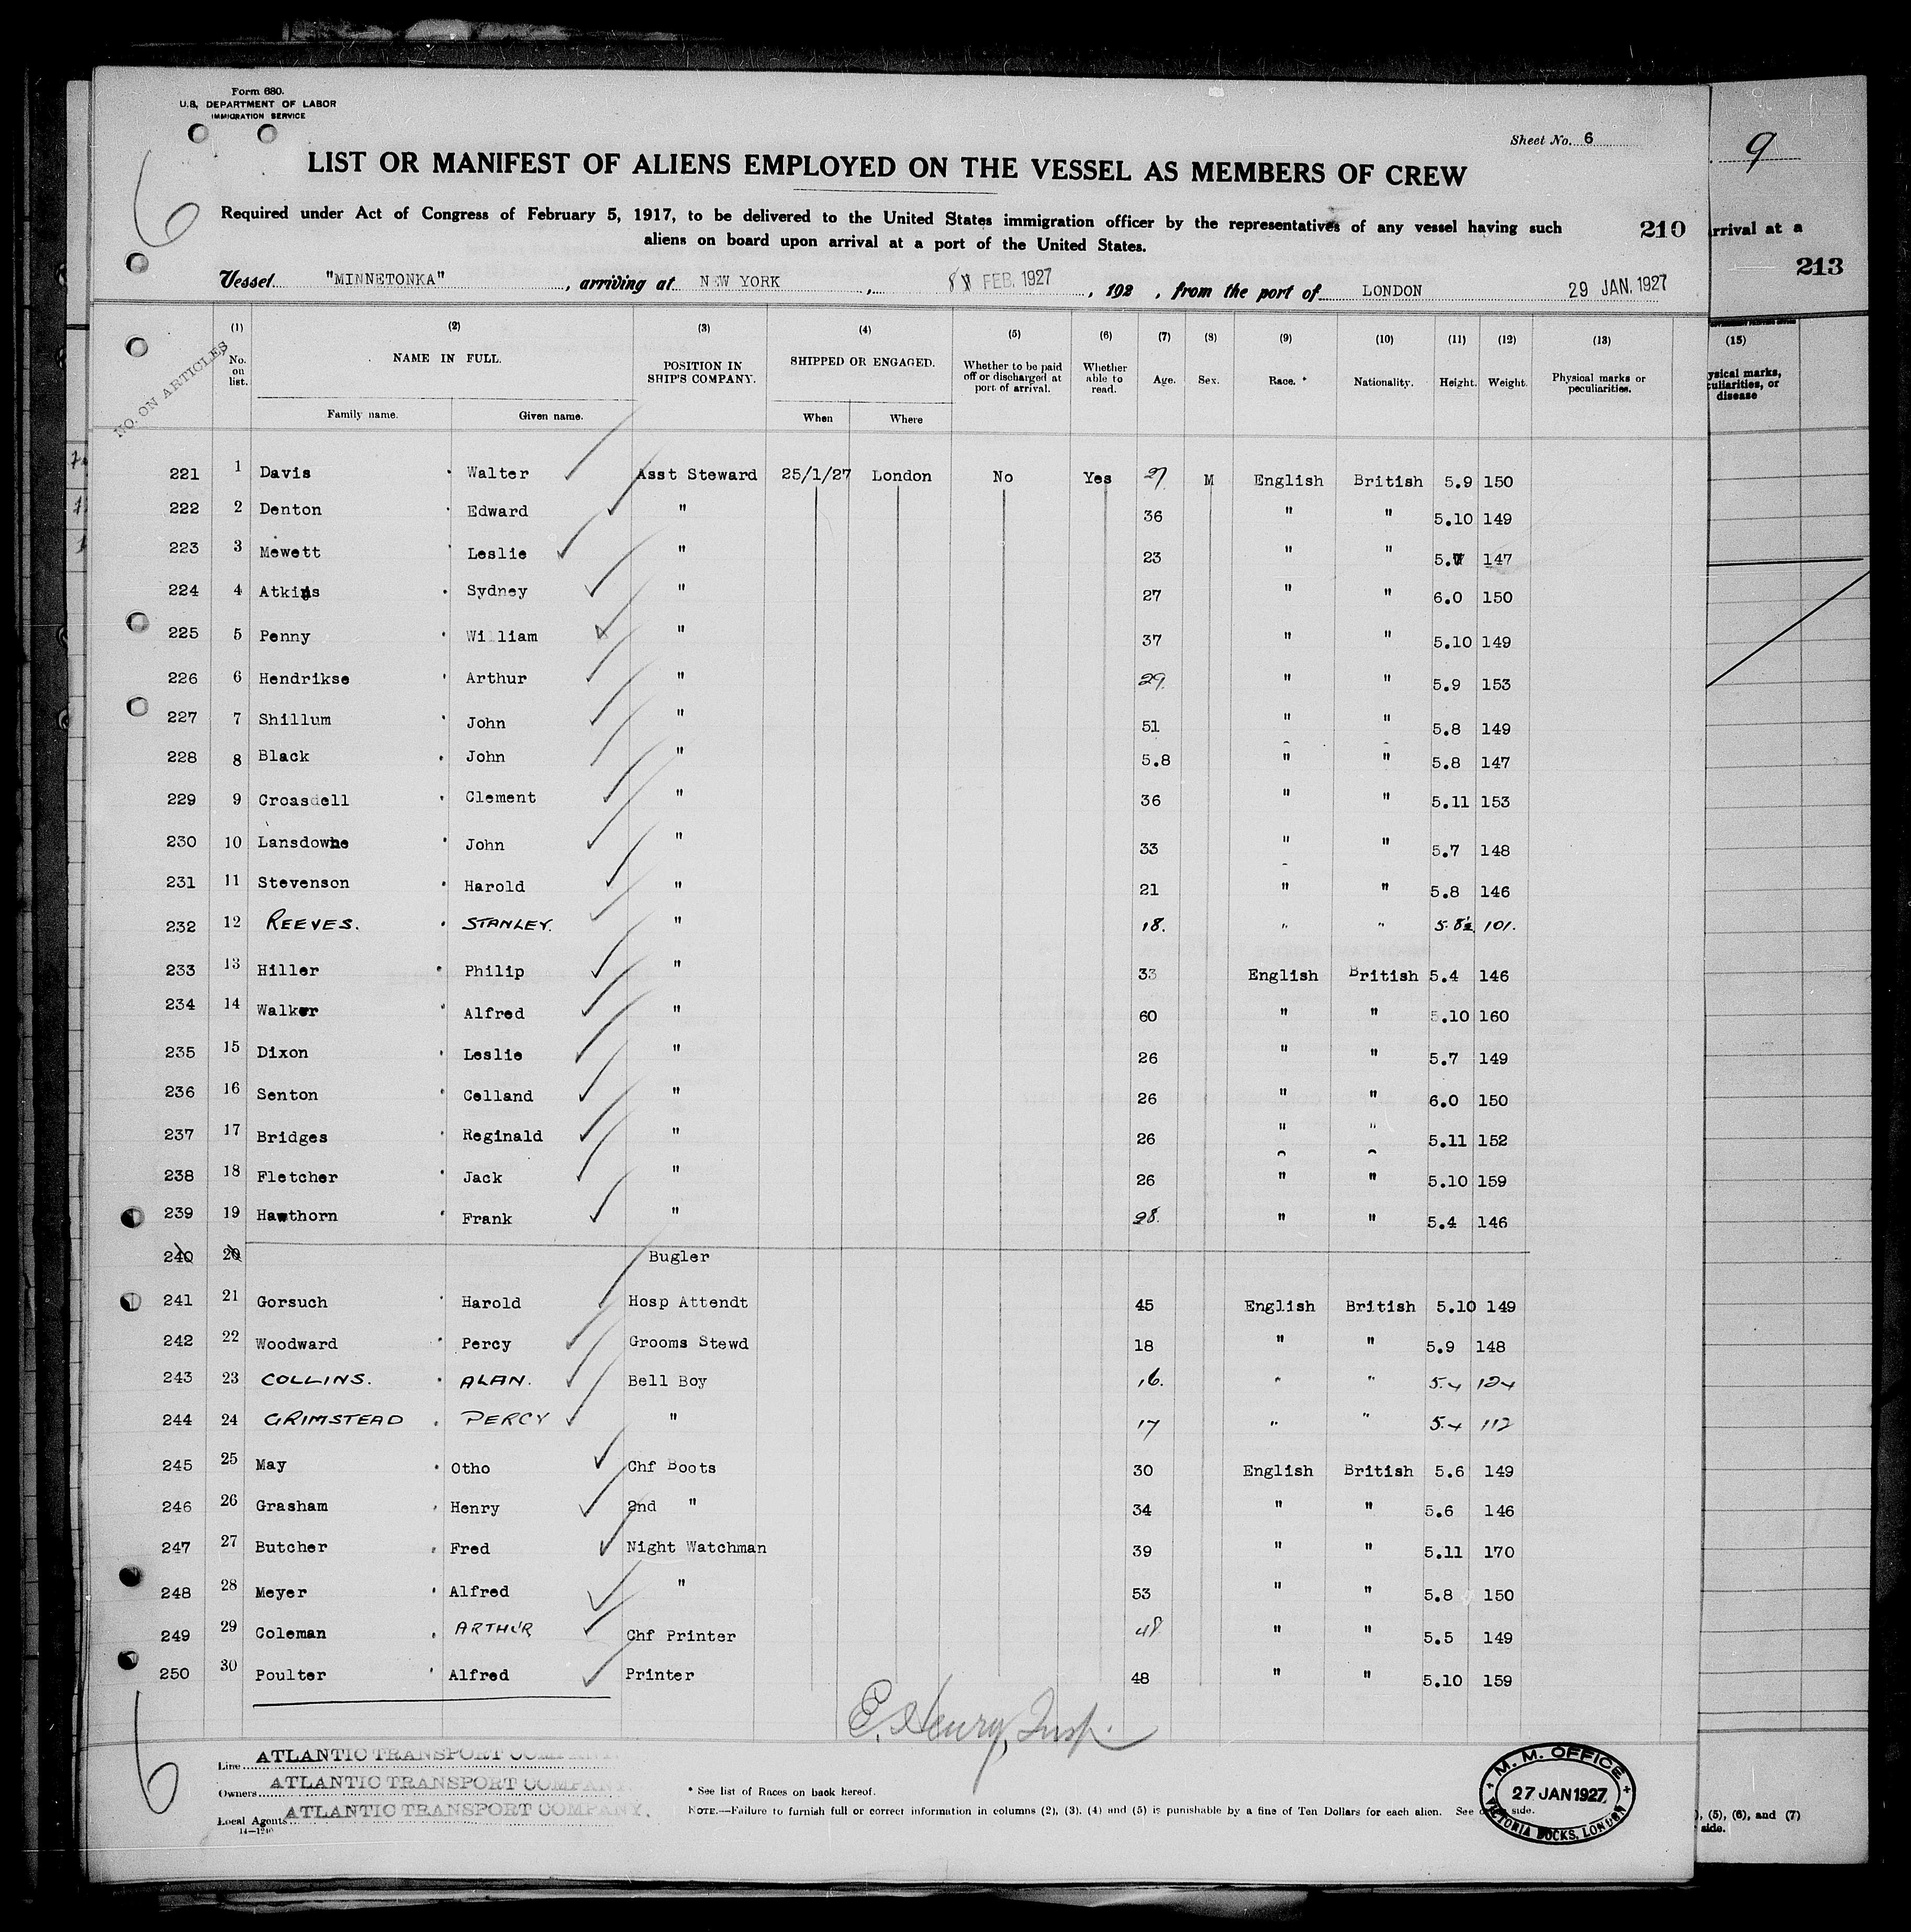 Form 680.
U.S. DEPARTMENT OF LABOR
IMMIGRATION SERVICE
Sheet No. 6
9
6
LIST OR MANIFEST OF ALIENS EMPLOYED ON THE VESSEL AS MEMBERS OF CREW
Required under Act of Congress of February 5, 1917, to be delivered to the United States immigration officer by the representatives of any vessel having such
aliens on board upon arrival at a port of the United States.
210
arrival at a
213
Vessel "MINNETONKA", arriving at NEW YORK, FEB. 1927, 192 , from the port of LONDON 29 JAN. 1927
NO. ON ARTICLES
(1) (2) (3) (4) (5) (6) (7) (8) (9) (10) (11) (12) (13) (15)
No. on list. NAME IN FULL. POSITION IN SHIP'S COMPANY. SHIPPED OR ENGAGED. Whether to be paid off or discharged at port of arrival. Whether able to read. Age. Sex. Race. * Nationality. Height. Weight. Physical marks or peculiarities.
ysical marks,
culiarities, or
disease
Family name. Given name. When Where
221 1 Davis Walter Asst Steward 25/1/27 London No Yes 27 M English British 5.9 150
222 2 Denton Edward " 36 " " 5.10 149
223 3 Mewett Leslie " 23 " " 5.7 147
224 4 Atkins Sydney " 27 " " 6.0 150
225 5 Penny William " 37 " " 5.10 149
226 6 Hendrikse Arthur " 29. " " 5.9 153
227 7 Shillum John " 51 " " 5.8 149
228 8 Black John " 5.8 " " 5.8 147
229 9 Croasdell Clement " 36 " " 5.11 153
230 10 Lansdowne John " 33 " " 5.7 148
231 11 Stevenson Harold " 21 " " 5.8 146
232 12 REEVES. STANLEY. " 18. " " 5.8½ 101.
233 13 Hiller Philip " 33 English British 5.4 146
234 14 Walker Alfred " 60 " " 5.10 160
235 15 Dixon Leslie " 26 " " 5.7 149
236 16 Senton Celland " 26 " " 6.0 150
237 17 Bridges Reginald " 26 " " 5.11 152
238 18 Fletcher Jack " 26 " " 5.10 159
239 19 Hawthorn Frank " 28. " " 5.4 146
240 20 Bugler
241 21 Gorsuch Harold Hosp Attendt 45 English British 5.10 149
242 22 Woodward Percy Grooms Stewd 18 " " 5.9 148
243 23 COLLINS. ALAN. Bell Boy 16. " " 5.4 124
244 24 GRIMSTEAD PERCY " 17 " " 5.4 112
245 25 May Otho Chf Boots 30 English British 5.6 149
246 26 Grasham Henry 2nd " 34 " " 5.6 146
247 27 Butcher Fred Night Watchman 39 " " 5.11 170
248 28 Meyer Alfred " 53 " " 5.8 150
249 29 Coleman ARTHUR Chf Printer 48 " " 5.5 149
250 30 Poulter Alfred Printer 48 " " 5.10 159
E. Henry, Insp.
6
Line ATLANTIC TRANSPORT COMPANY.
Owners ATLANTIC TRANSPORT COMPANY.
Local Agents ATLANTIC TRANSPORT COMPANY.
14—1240
* See list of Races on back hereof.
NOTE.—Failure to furnish full or correct information in columns (2), (3), (4) and (5) is punishable by a fine of Ten Dollars for each alien. See side.
M. M. OFFICE
27 JAN 1927
VICTORIA DOCKS, LONDON
, (5), (6), and (7)
side.